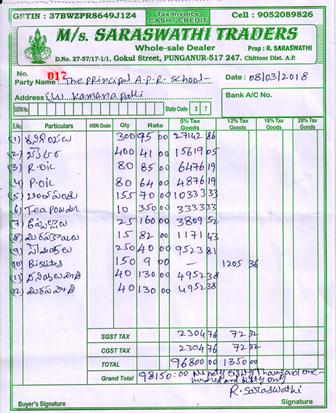 GSTIN : 37BWZPR8649J1Z4 Tax Invoice Cell : 9052089826
CASH / CREDIT
M/s. SARASWATHI TRADERS
Whole-sale Dealer Prop : R. SARASWATHI
D.No. 27-57-17-1/1, Gokul Street, PUNGANUR-517 247. Chittoor Dist. A.P.
No. 017 Date : 08/03/2018
Party Name : The principal A.P.R. School
Address Bank A/C No.
GSTIN No. State Code : 37
S.No. Particulars HSN Code Qty Rate 5% Tax Goods 12% Tax Goods 18% Tax Goods 28% Tax Goods
(1) 300 95 00 27142 86
(2) 400 41 00 15619 05
(3) R-oil 80 85 6476 19
(4) P-oil 80 64 4876 19
(5) 155 70 10333 33
(6) Tea powder 10 350 3333 33
(7) 25 160 3809 52
(8) 15 82 1171 43
(9) 250 40 9523 81
(10) Biscuits 150 9 00 - 1205 36
(11) 40 130 4952 38
(12) 40 130 4952 38
SGST TAX 2304 76 72 32
CGST TAX 2304 76 72 32
TOTAL 96800 00 1350 00
Grand Total 98150:00 Ninety eighty thousand one hundred and fifty only
R. Saraswathi
Buyer's Signature Signature